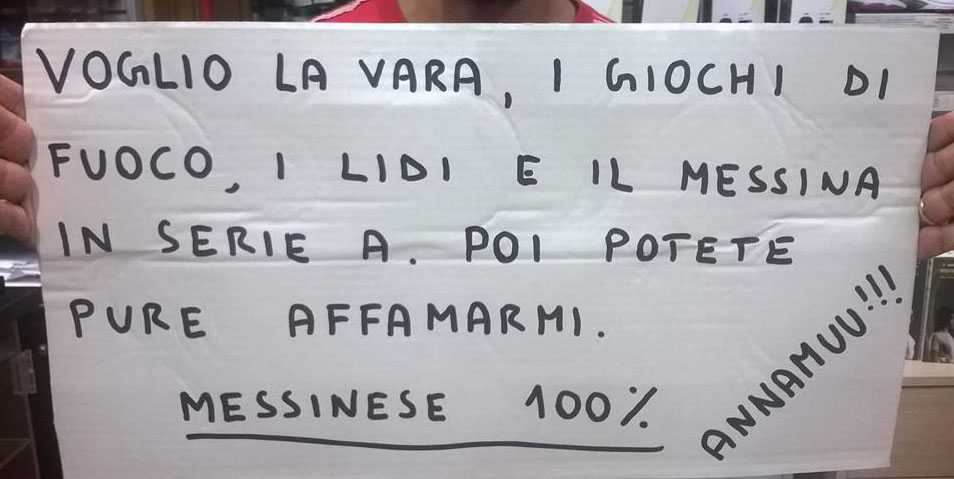 VOGLIO LA VARA, I GIOCHI DI
FUOCO, I LIDI E IL MESSINA
IN SERIE A. POI POTETE
PURE AFFAMARMI.
MESSINESE 100%
ANNAMUU!!!